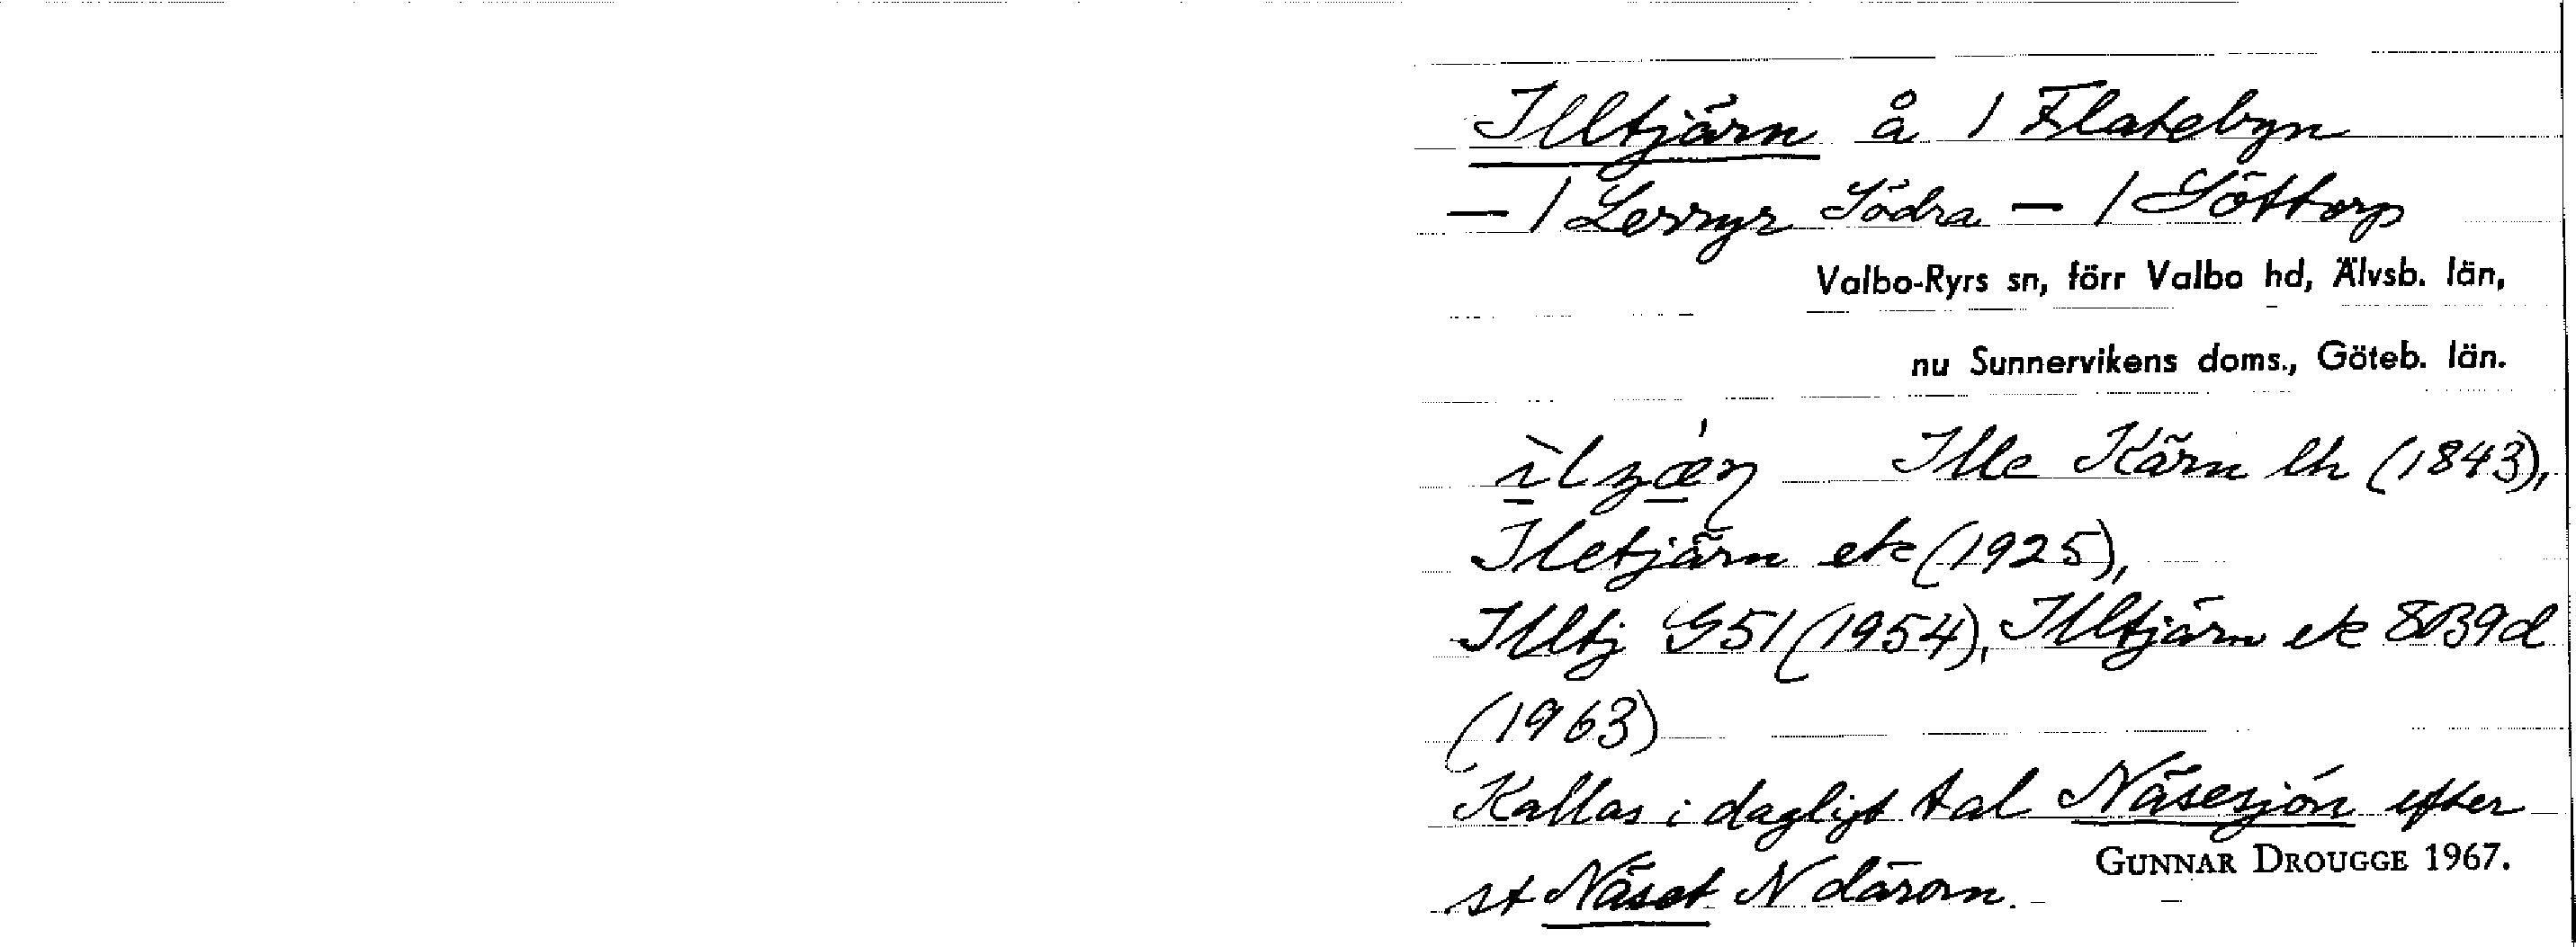 Illtjärn å 1 Flatebyn
— 1 Lerryr Södra — 1 Söttorp
Valbo-Ryrs sn, förr Valbo hd, Älvsb. län,
nu Sunnervikens doms., Göteb. län.
Ille Kärn lh (1843),
Iletjärn ek (1925),
Illtj G51 (1954), Illtjärn ek 8B39d
(1963)
Kallas i dagligt tal Näsesjön efter
GUNNAR DROUGGE 1967.
st Näset N därom.